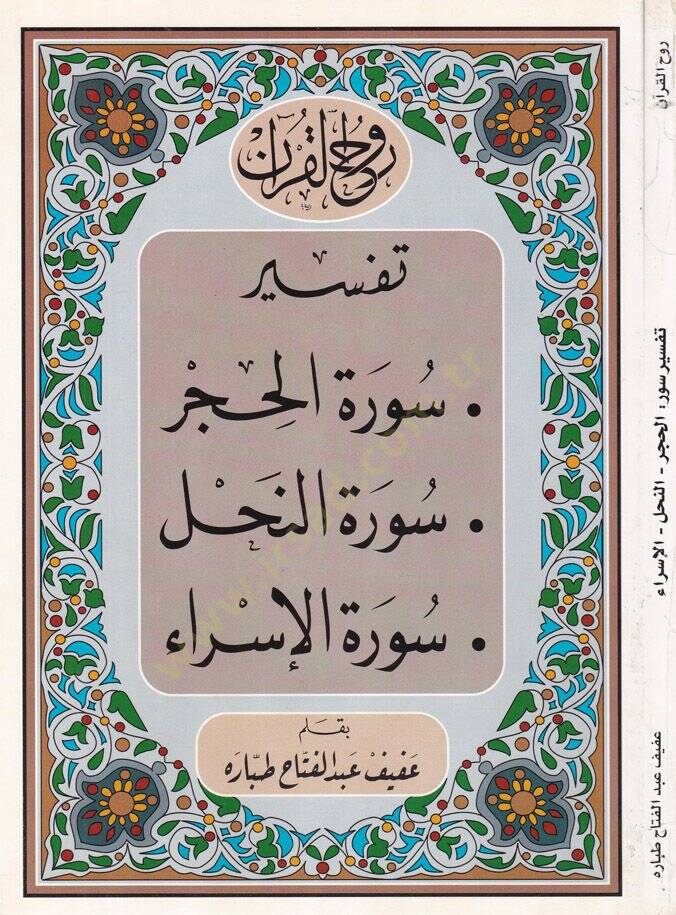 روح القرآن
تفسير
• سُورَة الحِجْر
• سُورَة النَحْل
• سُورَة الإسْراء
بقلم
عَفيفْ عَبد الفتَّاح طبَّارَه
روح القرآن
تفسير سور: الحجر - النحل - الإسراء
عفيف عبد الفتاح طباره
www.irsad.com.tr